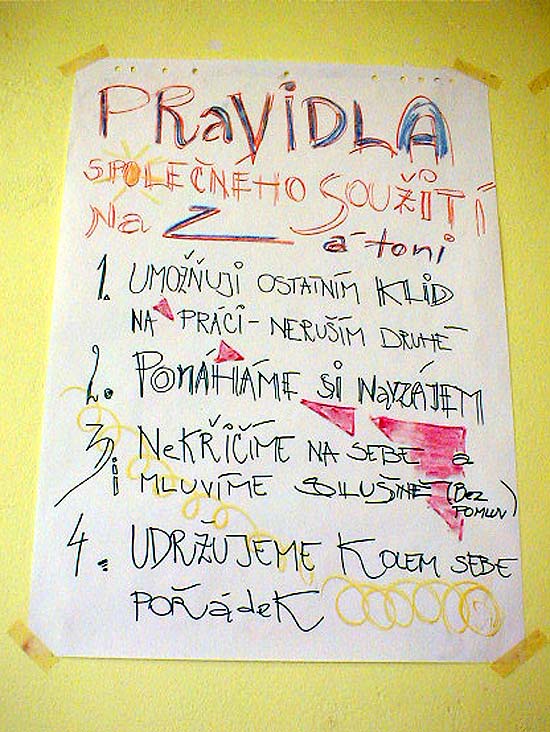 PRaVIDLA
SPOLEČNÉHO SOUŽITÍ
Na Z átoni
1. UMOŽŇUJI OSTATNÍM KLID
NA PRÁCI - NERUŠÍM DRUHÉ
2. POMÁHÁME SI NaVZÁJEM
3. NeKŘIČÍME NA SEBE a
i MLUVÍME SLUŠNĚ (Bez
POMLUV)
4. UDRŽUJEME KOLEM SEBE
POŘádeK